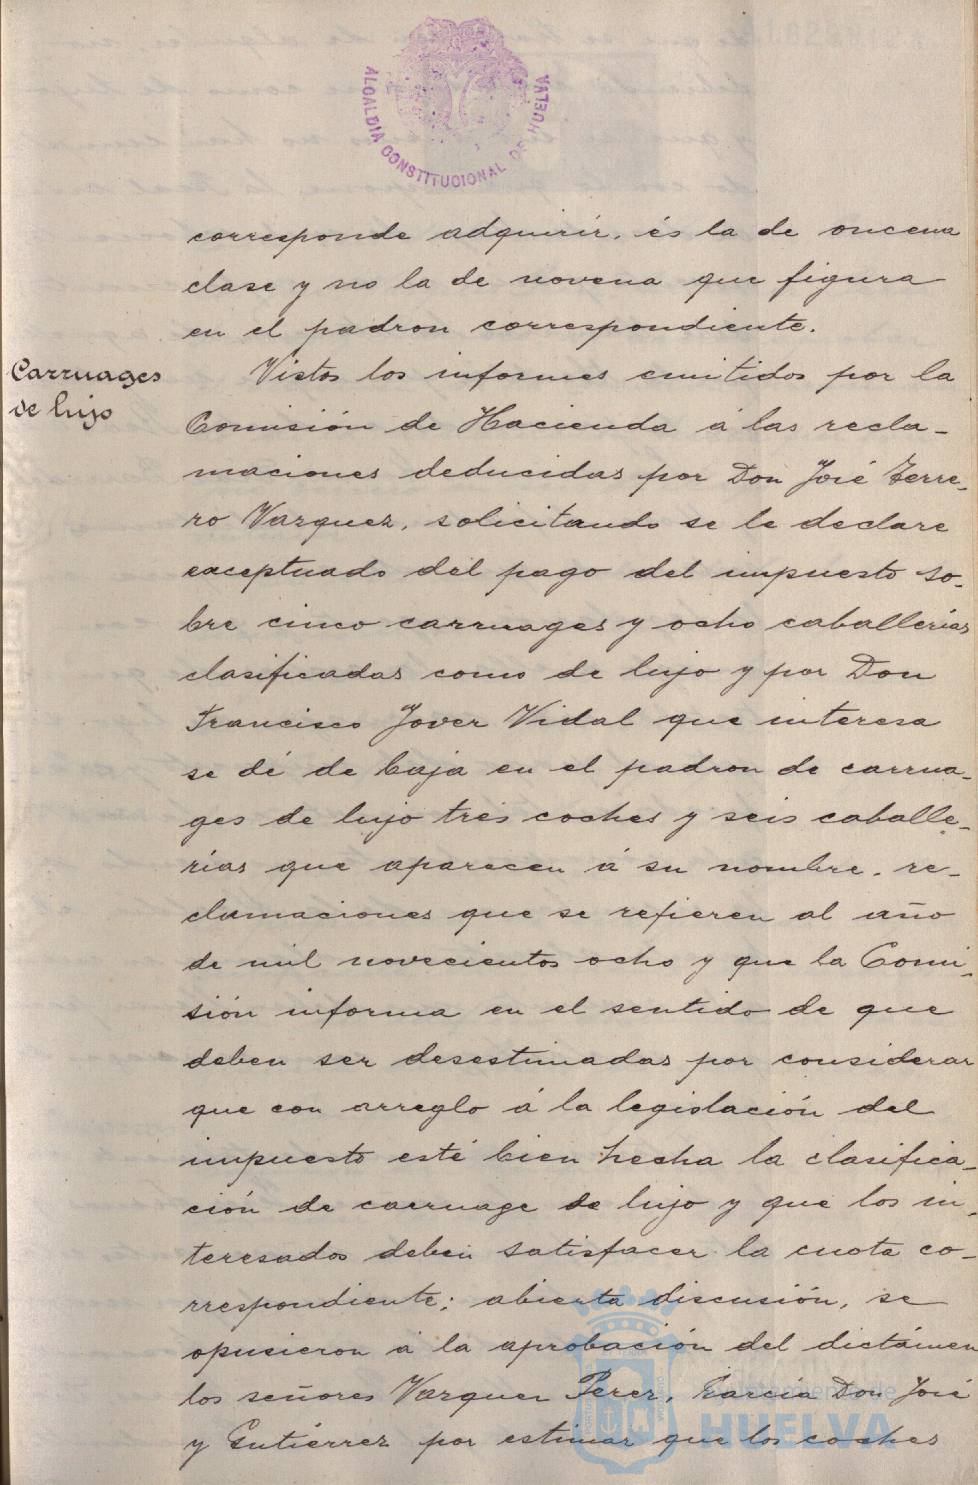 ALCALDIA CONSTITUCIONAL DE HUELVA
corresponde adquirir, és la de oncena
clase y no la de novena que figura
en el padron correspondiente.
Carruages
de lujo
Vistos los informes emitidos por la
Comisión de Hacienda á las recla-
maciones deducidas por Don José Ferre-
ro Vazquez, solicitando se le declare
exceptuado del pago del impuesto so-
bre cinco carruages y ocho caballerías
clasificadas como de lujo y por Don
Francisco Jover Vidal que interesa
se dé de baja en el padron de carrua-
ges de lujo tres coches y seis caballe-
rias que aparecen á su nombre, re-
clamaciones que se refieren al año
de mil novecientos ocho y que la Comi-
sión informa en el sentido de que
deben ser desestimadas por considerar
que con arreglo á la legislación del
impuesto esté bien hecha la clasifica-
ción de carruage de lujo y que los in-
teresados deben satisfacer la cuota co-
rrespondiente; abierta discusión, se
opusieron á la aprobación del dictámen
los señores Vazquez Perez, García Don José
y Gutiérrez por estimar que los coches
Ayuntamiento de
HUELVA